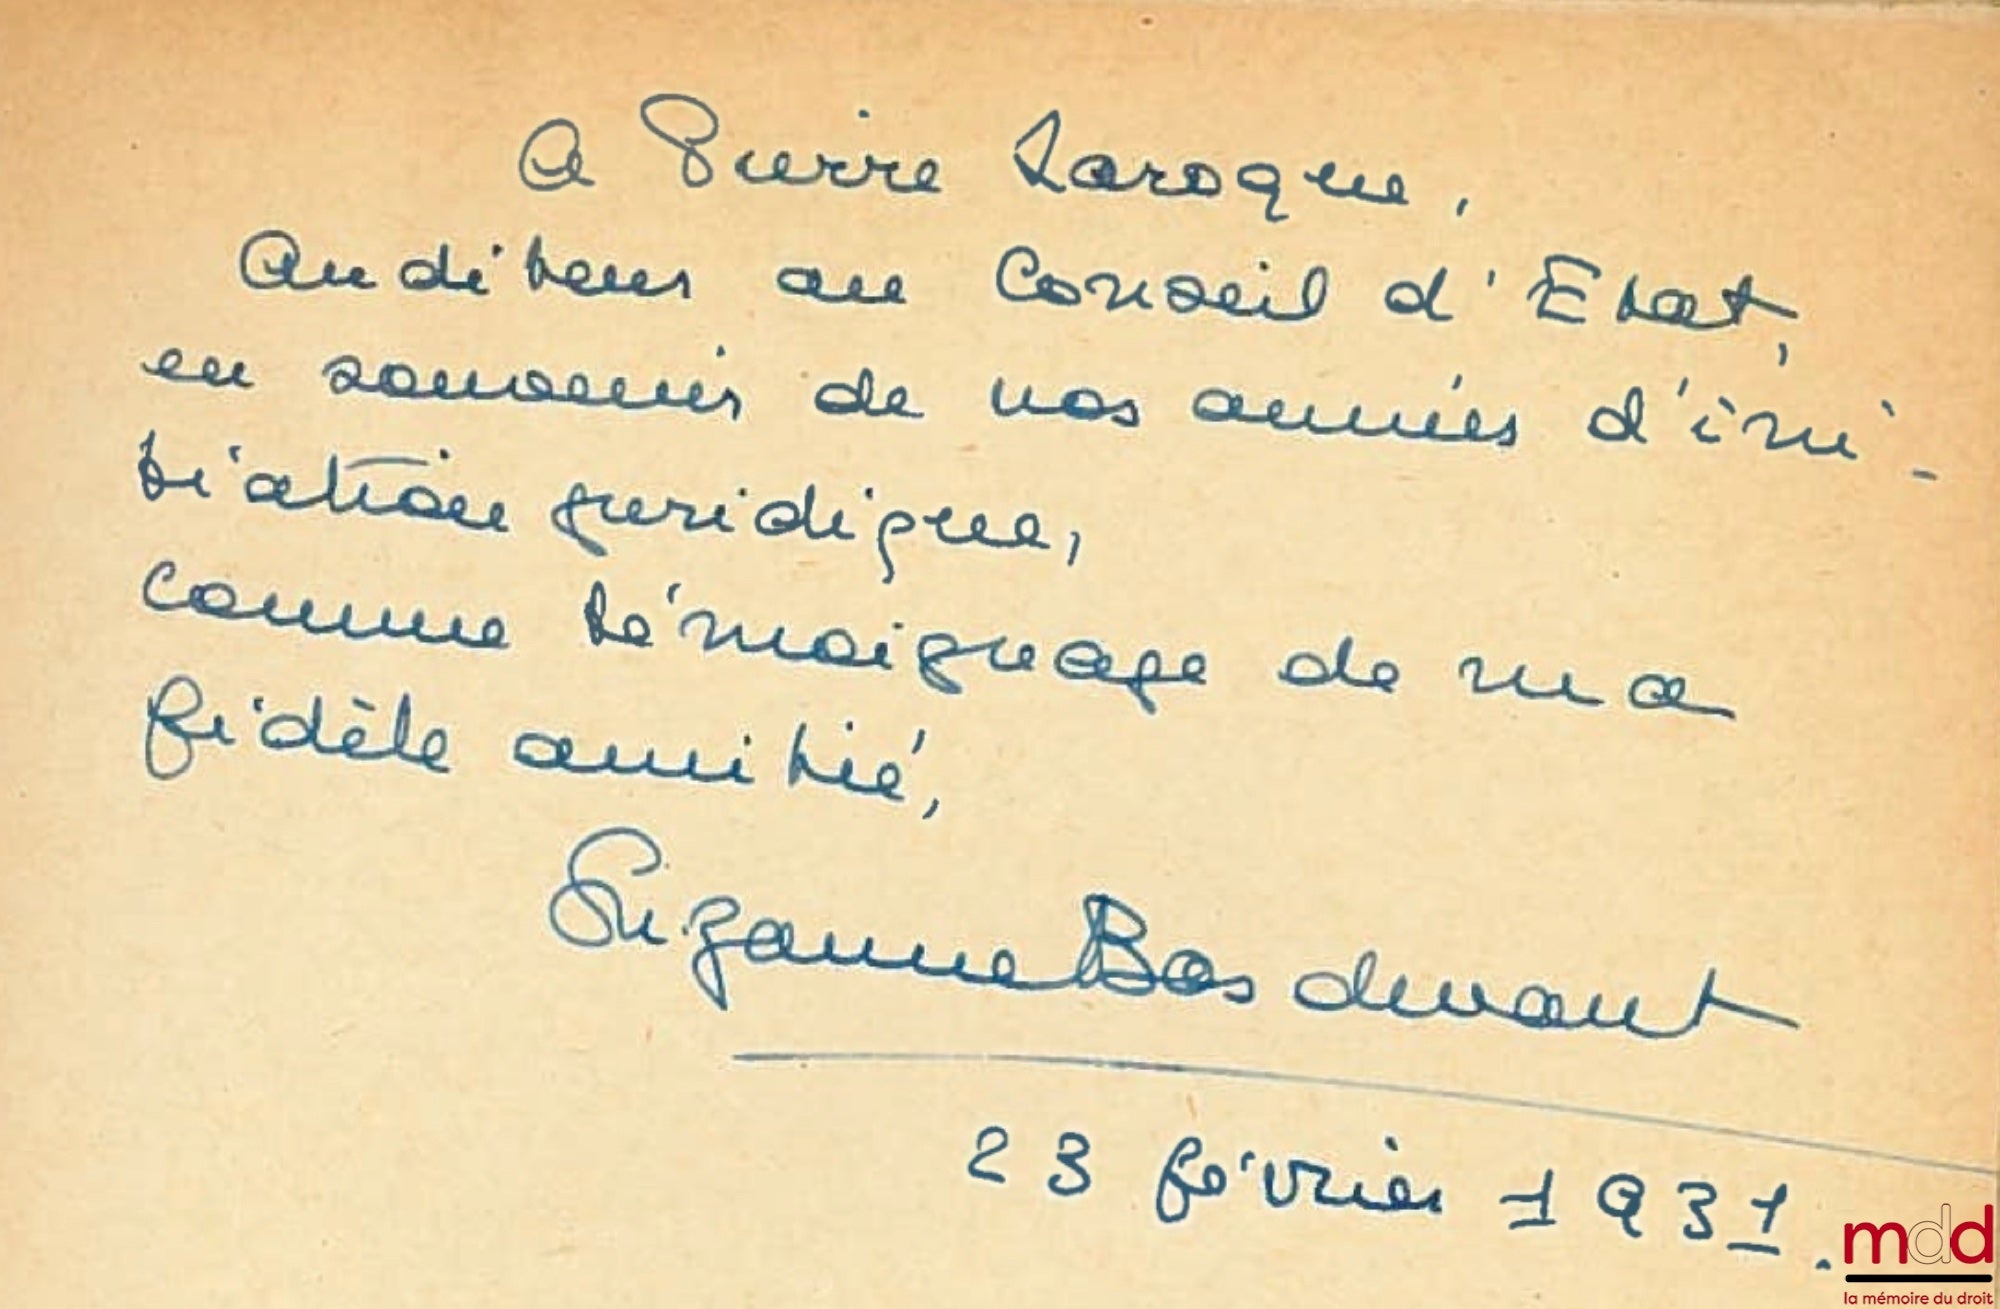 A Pierre Laroque,
Auditeur au Conseil d'Etat,
en souvenir de nos années d'ini-
tiation juridique,
comme témoignage de ma
fidèle amitié,
Suzanne Basdevant
23 février 1931.
mdd
la mémoire du droit